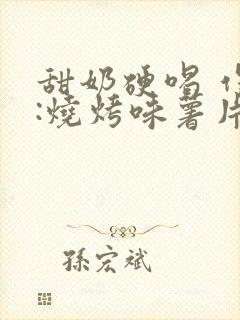 甜奶硬唱
:燒烤味薯片
孫宏斌